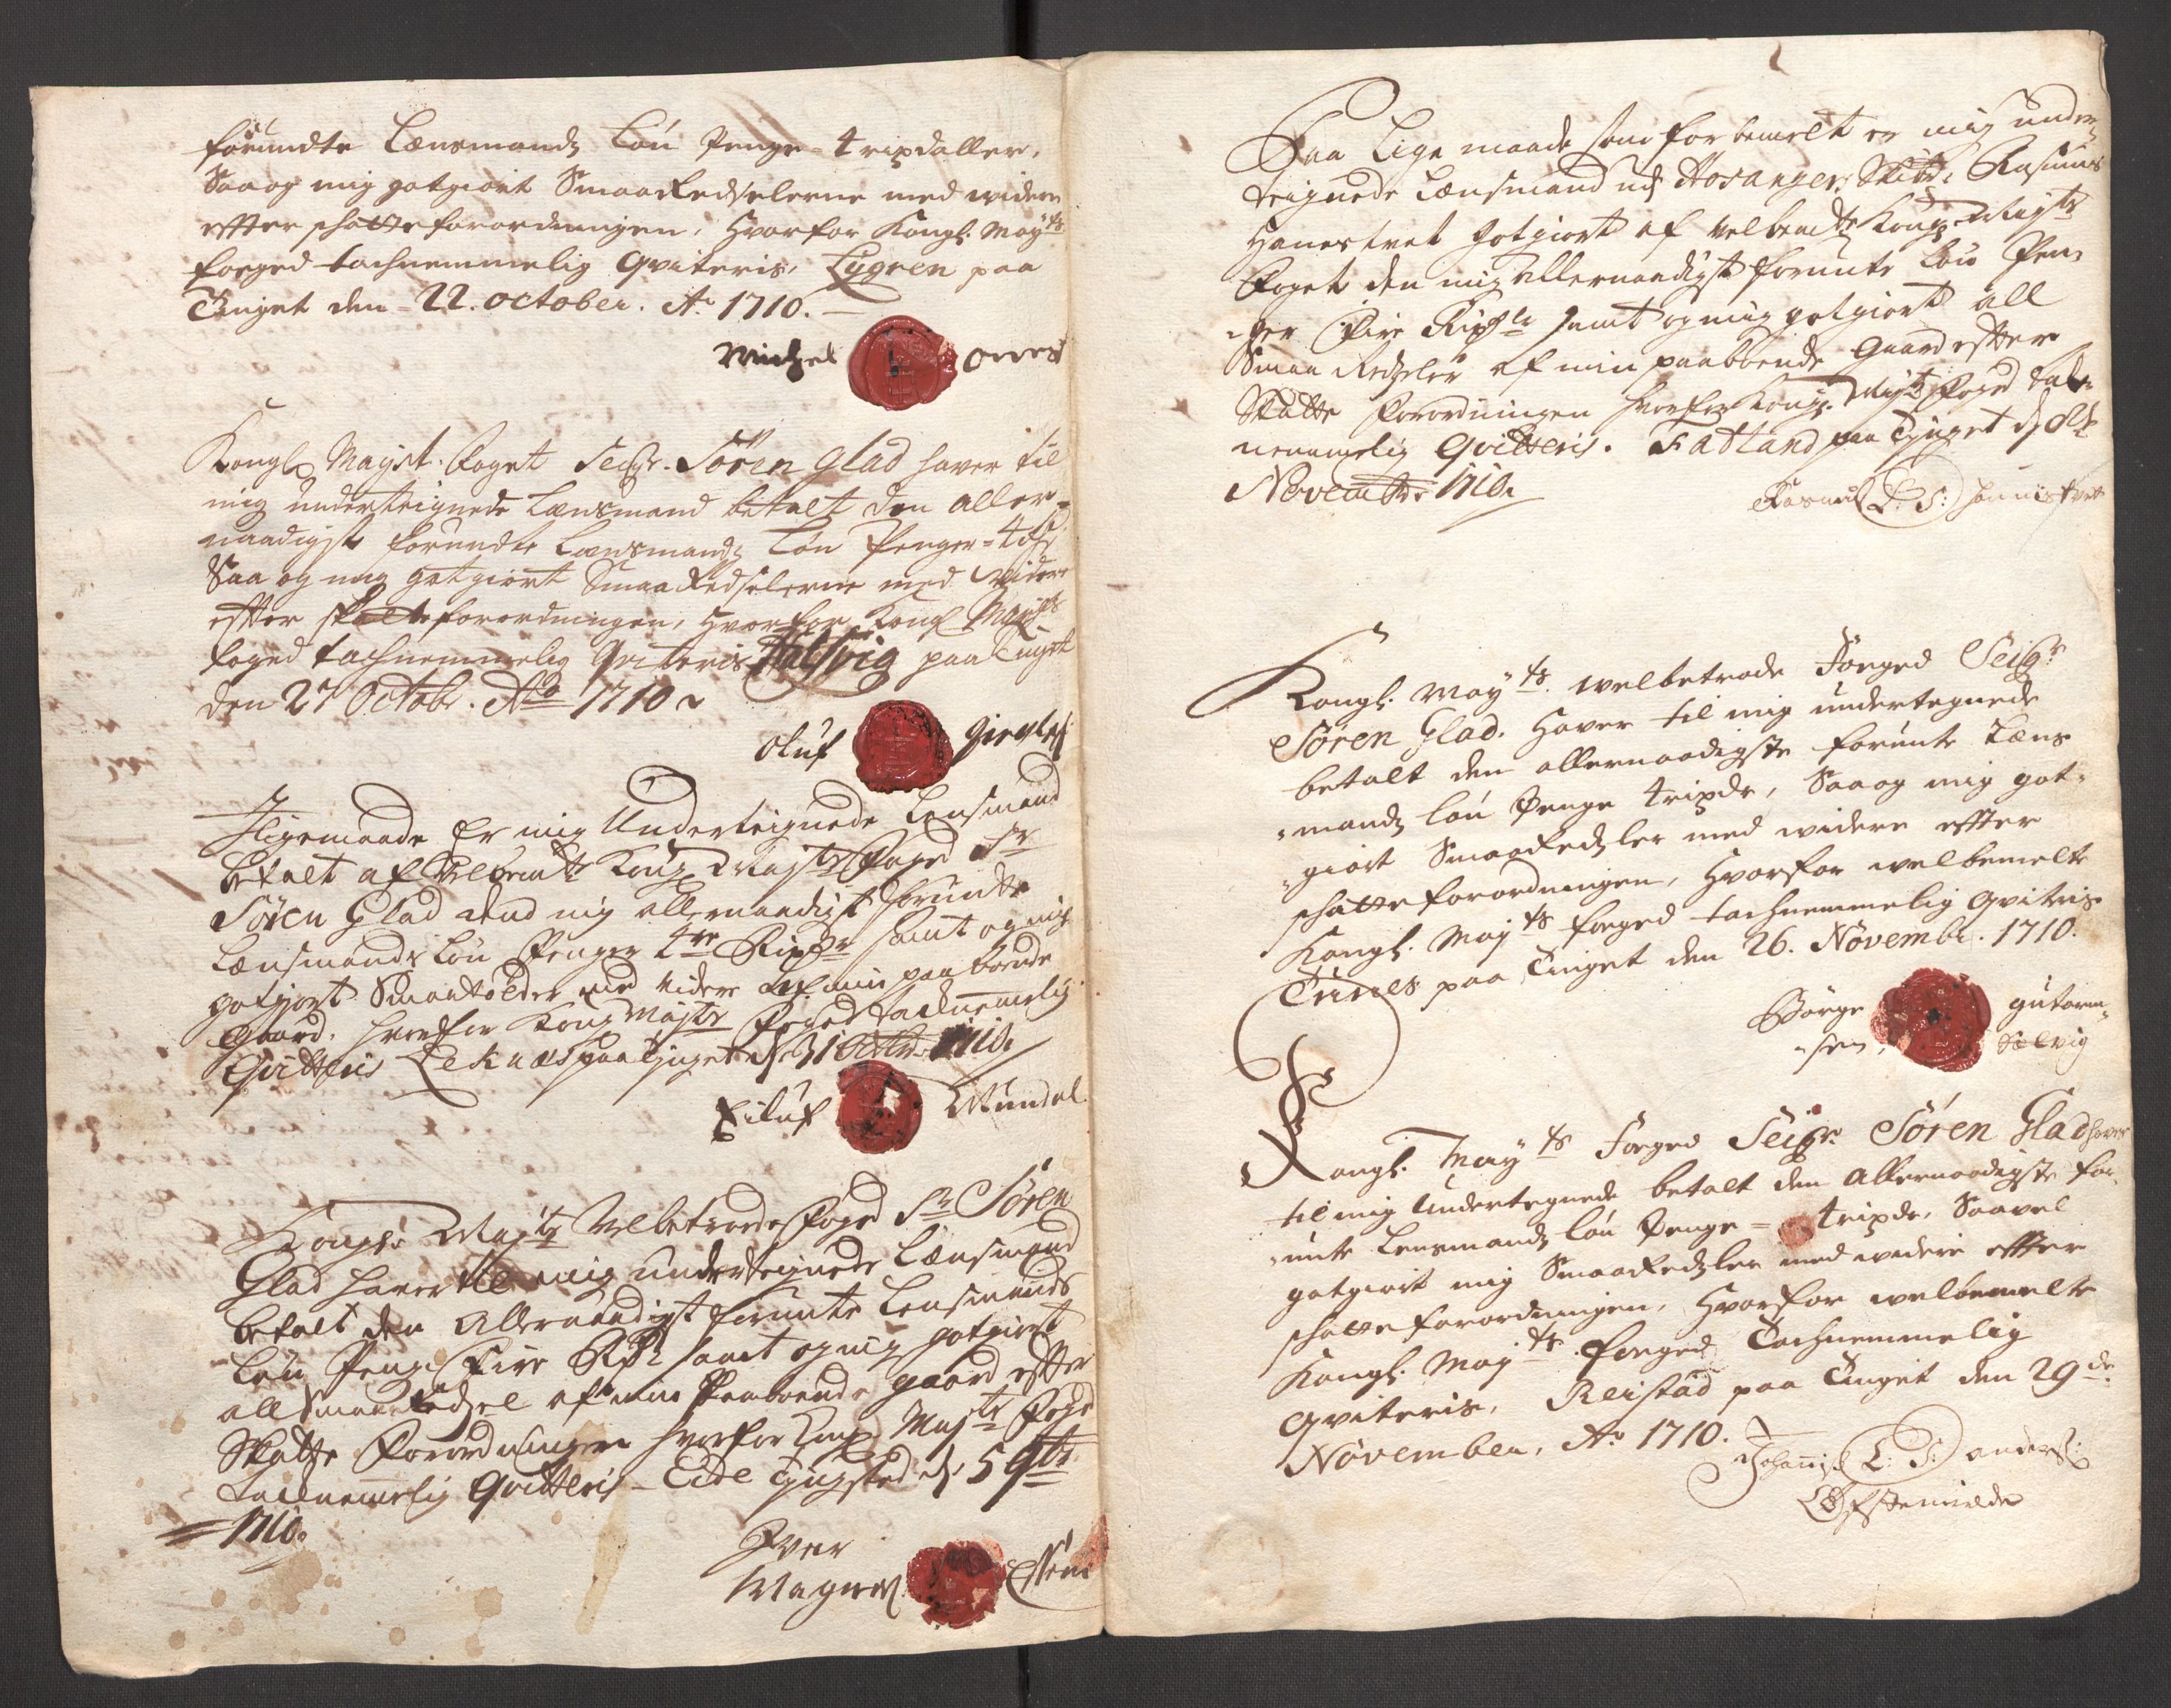 forundte Lænsmandz Løn Penge 4 rixdaller,
Saa og mig gotgiort Smaa Redselerne med widere
effter schatte forordningen, Hvorfor Kongl. May^ts
foeged tachnemmelig Qviteris, Lygren paa
Tinget den 22. October. A^o 1710.
Michel Orres
Kongl. Mayst. Foget Seigr. Søren Glad haver til
mig underteignede Lænsmand betalt den aller-
naadigste forundte Lænsmandz Løn Penger = 4 rdr
Saa og mig gotgiort Smaa Redselerne med Widere
effter skatte forordningen, Hvorfor Kongl Mayts
foged tachnemmelig Qviteris Halsvig paa Tinget
den 27 Octobr. A^o 1710
Oluf
Ligemaade Er mig Underteignede Lensmand
betalt af Velbemte Kong. Mayts Foged Sr
Søren Glad dend mig allernaadigst forundte
Lænsmands Løn Penger 4re Rixdr samt og mig
gotgiort Smaa med Videre af min paaboende
Gaard, hvorfor Kong Mayts Foged tacknemmelig
Qvitteris Leknæs paa Tinget d. 31 Octbr. 1710.
Eiluf Mundal
Kongl. Mayts Velbetroede Foged Sr Søren
Glad haver til mig underteignede Lænsmand
betalt den Allernaadigst forunte Lensmands
Løn Penge Fire Rdr samt og mig gotgiort
all Smaa Redsel af min Paaboende gaard effter
Skatte Forordningen hvorfor Kong Mayts Foged
tacknemmelig Qvitteris - Eide Tingsted d. 5 9br
1710.
Iver
Magnes
Paa Lige maade som forbemelt er mig under-
teignede Lænsmand udj Hosanger Skibr. Rasmus
Hanestvet gotgiort af Velbemte Kong. Mayts
Foget den mig Allernaadigst forunte Løn Pen-
ger Fire Rixdlr samt og mig gotgiort all
Smaa Redseler af min paaboende Gaard effter
Skatte Forordningen hvorfor Kong. Mayts Foged tack-
nemmelig Qvitteris. Fatland paa Tinget d. 
Novembr. 1710.
Rasmus L. S: Hannistvet
Kongl. May^ts. welbetrode Foeged Seigr
Søren Glad. Haver til mig undertegnede
betalt den allernaadigste forunte Læns
mandz løn Penge 4 rixdr, Saa og mig got-
giort Smaa Redzler med widere effter
schatte forordningen, Hvorfor welbemelte
Kongl. May^ts foeged tachnemmelig Qviteris.
Tunes paa Tinget den 26. Novembr. 1710.
Børge gutorm-
sen, Sælvig
Kongl. May^ts Foeged Seigr. Søren Glad haver
til mig Undertegnede betalt den Allernaadigste for-
unte Lensmandz løn Penge = 4 rixdr, Saavel
gotgiort mig Smaa Redzler med widere effter
schatte forordningen, Hvorfor welbemelte
Kongl. May^ts. foeged Tachnemmelig
Qviteris, Reistad paa Tinget den 29^de
November, A^o 1710.
Johannis L: S: anders:
Øffstemilde